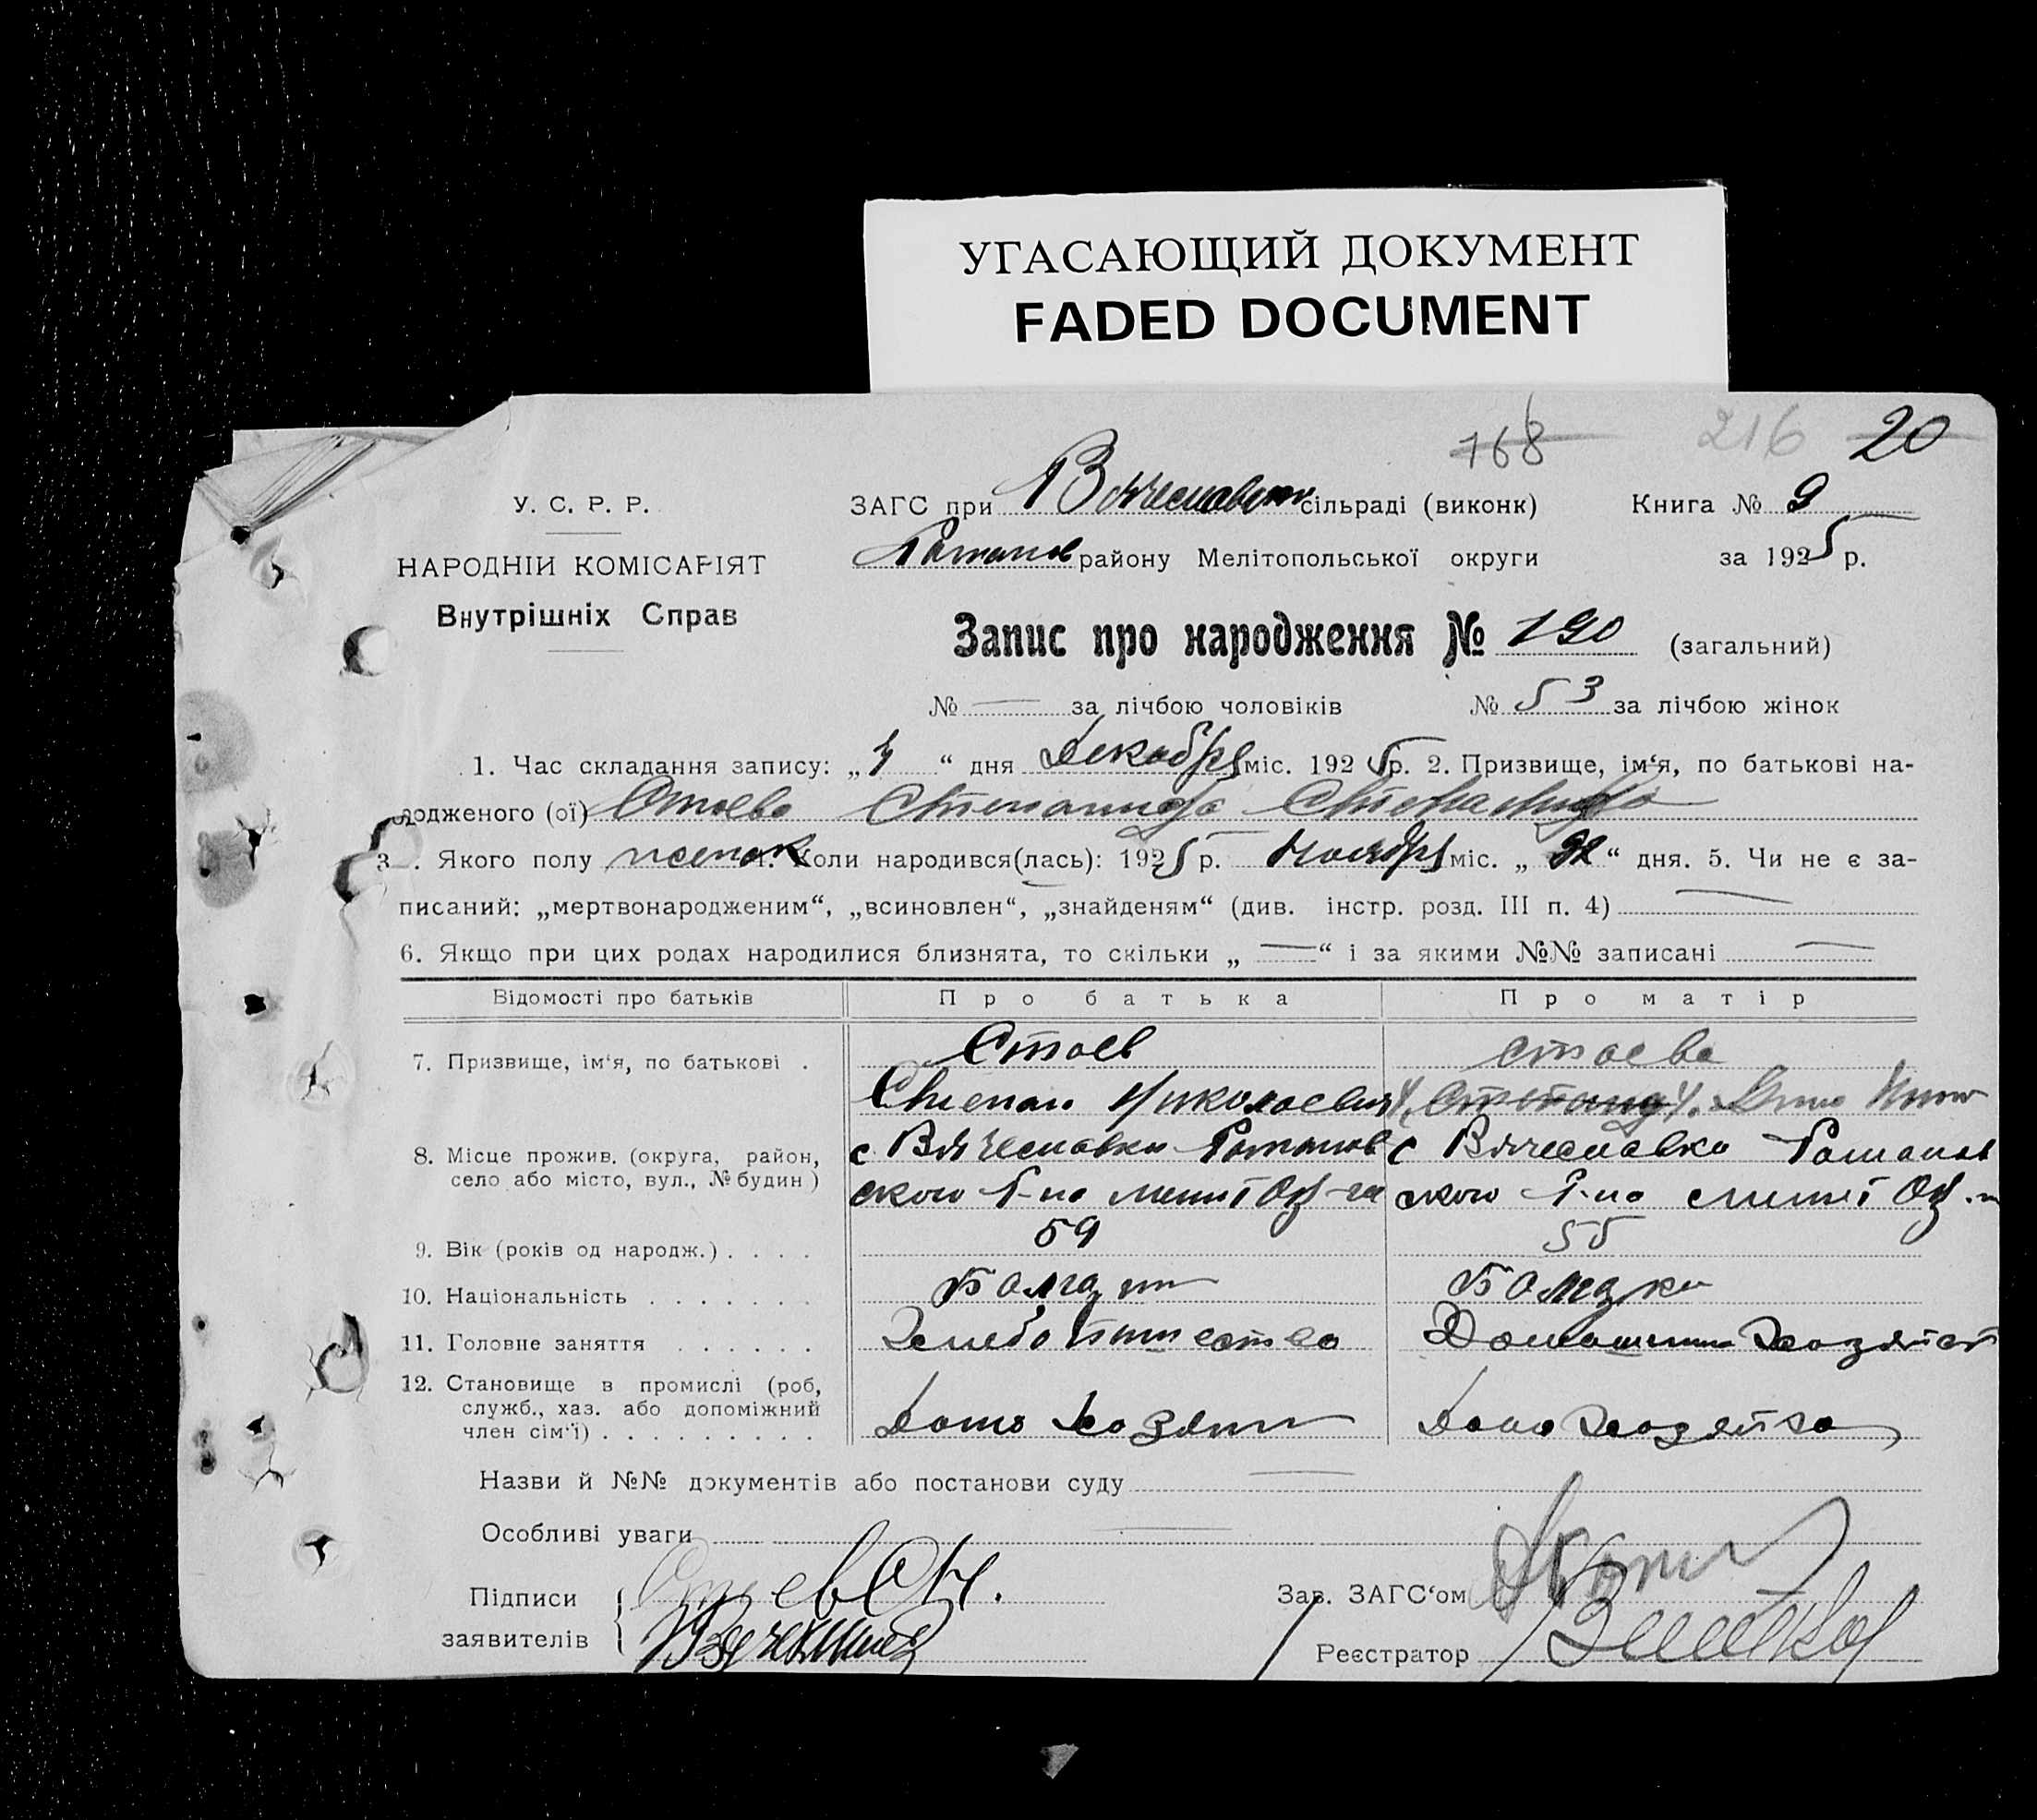 УГАСАЮЩИЙ ДОКУМЕНТ
FADED DOCUMENT
168 216 20
У. С. Р. Р.
ЗАГС при сільраді (виконк) Книга № 9
НАРОДНІЙ КОМІСАРІЯТ
району Мелітопольської округи за 1925 р.
Внутрішніх Справ
Запис про народження № 190 (загальний)
№ — за лічбою чоловіків № 53 за лічбою жінок
1. Час складання запису: „4“ дня Декабря міс. 1925 р. 2. Призвище, ім‘я, по батькові на-
родженого (ої) Стоева Степанида Степанида
3. Якого полу женск 4. Коли народився(лась): 1925 р. Ноября міс. „ “ дня. 5. Чи не є за-
писаний: „мертвонародженим“, „всиновлен“, „знайденям“ (див. інстр. розд. III п. 4) —
6. Якщо при цих родах народилися близнята, то скільки „ — “ і за якими №№ записані —
Відомості про батьків Про батька Про матір
7. Призвище, ім‘я, по батькові . Стоев Стоева
Степан Николаевич Анна
8. Місце прожив. (округа, район, с Вячеславка Романов с Вячеславка Романов
село або місто, вул., № будин) ского Р-на Мелит Окр-га ского Р-на Мелит Окр.
9. Вік (років од народж.) . . . . 59 55
10. Національність . . . . . . . Болгарин Болгарка
11. Головне заняття . . . . . . Хлебопашество Домашнее Хозяйст
12. Становище в промислі (роб,
служб., хаз. або допоміжний
член сім‘ї) . . . . . . . . . Домохозяин Домохозяйка
Назви й №№ документів або постанови суду —
Особливі уваги —
Підписи Стоев СН. Зав. ЗАГС‘ом
заявителів
Реєстратор